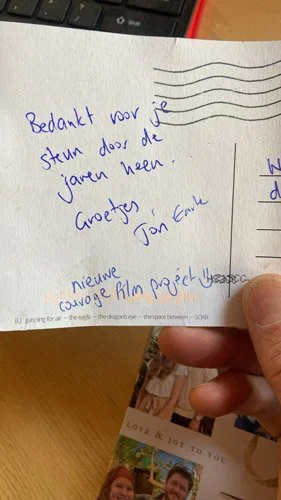 Bedankt voor je
steun door de
jaren heen.
Groetjes
Jon Emile
nieuwe
courage film project
(L) gasping for air ~ the eagle ~ the dragons eye ~ the space between ~ SOAR
W
d
LOVE & JOY TO YOU